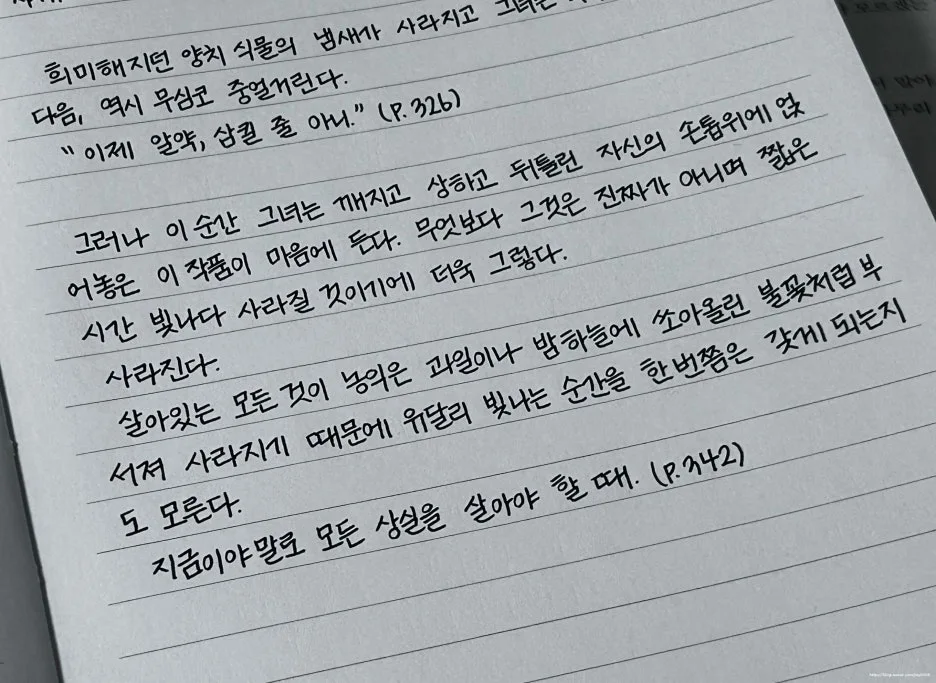 희미해지던 양치 식물의 냄새가 사라지고 그녀는
다음, 역시 무심코 중얼거린다.
"이제 알약, 삼킬 줄 아니." (p.326)
그러나 이 순간 그녀는 깨지고 상하고 뒤틀린 자신의 손톱위에 얹
어놓은 이 작품이 마음에 든다. 무엇보다 그것은 진짜가 아니며 짧은
시간 빛나다 사라질 것이기에 더욱 그렇다.
사라진다.
살아있는 모든 것이 농익은 과일이나 밤하늘에 쏘아올린 불꽃처럼 부
서져 사라지기 때문에 유달리 빛나는 순간을 한번쯤은 갖게 되는지
도 모른다.
지금이야말로 모든 상실을 살아야 할 때. (p.342)